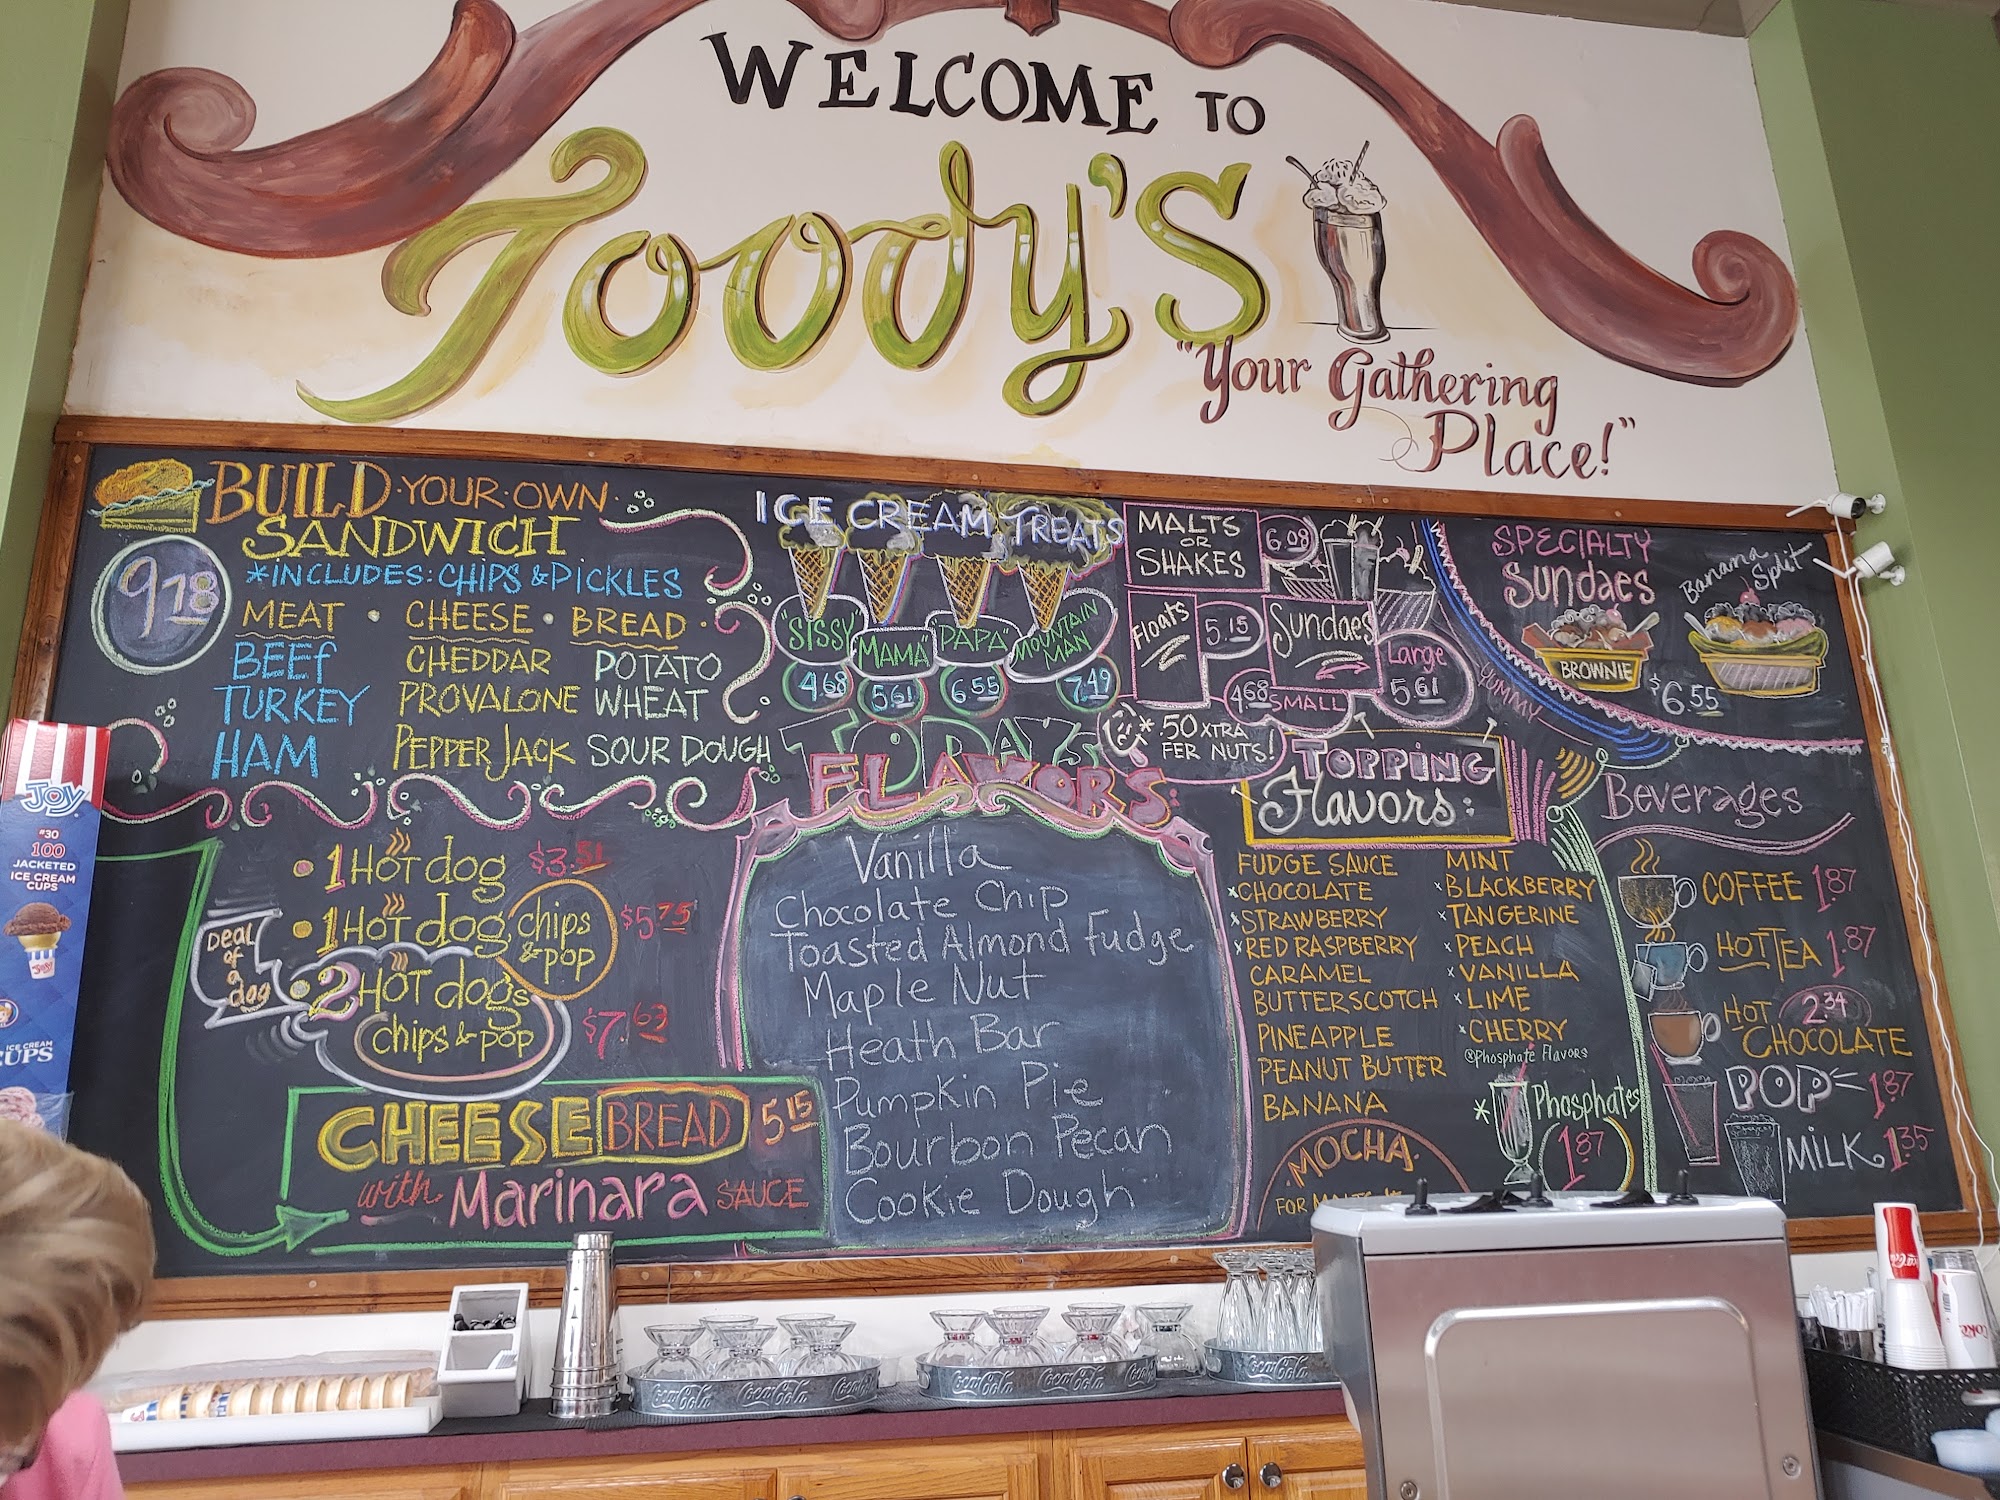 WELCOME TO
Toody's
"Your Gathering
Place!"
BUILD · YOUR · OWN
SANDWICH
*INCLUDES: CHIPS & PICKLES
9.18
MEAT · CHEESE · BREAD
BEEF CHEDDAR POTATO
TURKEY PROVALONE WHEAT
HAM PEPPER JACK SOUR DOUGH
• 1 HOT dog $3.51
• 1 HOT dog, chips & pop $5.75
• 2 HOT dogs
chips & pop $7.63
Deal
of
a
dog
CHEESE BREAD 5.15
with Marinara SAUCE
ICE CREAM TREATS
"SISSY" 4.68
MAMA 5.61
"PAPA" 6.55
MOUNTAIN
MAN 7.49
MALTS
OR
SHAKES 6.08
Floats 5.15
Sundaes
4.68 SMALL
Large
5.61
* .50 XTRA
FER NUTS!
TODAY'S
FLAVORS:
Vanilla
Chocolate Chip
Toasted Almond Fudge
Maple Nut
Heath Bar
Pumpkin Pie
Bourbon Pecan
Cookie Dough
SPECIALTY
Sundaes
BROWNIE
Banana
Split
$6.55
YUMMY
TOPPING
Flavors:
FUDGE SAUCE
*CHOCOLATE
*STRAWBERRY
*RED RASPBERRY
CARAMEL
BUTTERSCOTCH
PINEAPPLE
PEANUT BUTTER
BANANA
MINT
*BLACKBERRY
*TANGERINE
*PEACH
*VANILLA
*LIME
*CHERRY
*Phosphate Flavors
* Phosphates
1.87
MOCHA
FOR MALTS
Beverages
COFFEE 1.87
HOT TEA 1.87
HOT 2.34
CHOCOLATE
POP 1.87
MILK 1.35
JOY
#30
100
JACKETED
ICE CREAM
CUPS
ICE CREAM
CUPS
Coca-Cola
Coca-Cola
Coca-Cola
Coca-Cola
Coca-Cola
Coca-Cola
Coca-Cola
Coke